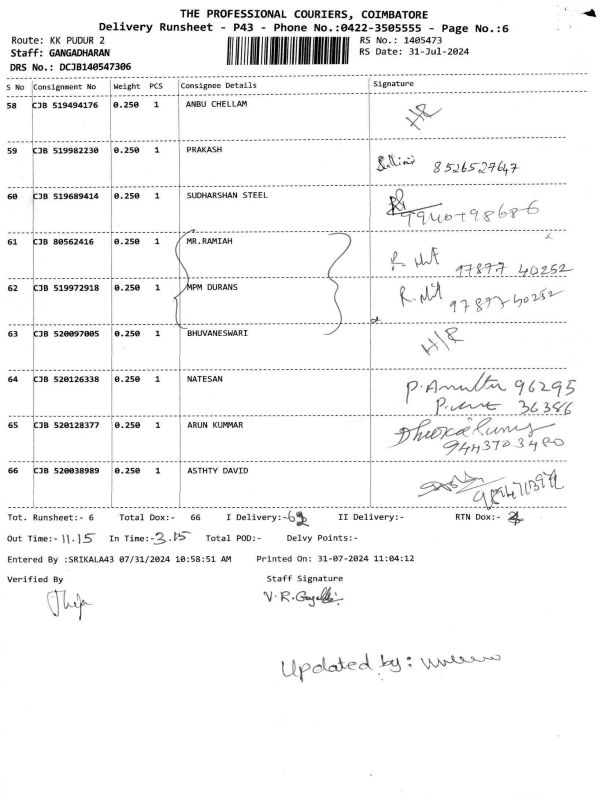 THE PROFESSIONAL COURIERS, COIMBATORE
Delivery Runsheet - P43 - Phone No.:0422-3505555 - Page No.:6
Route: KK PUDUR 2 RS No.: 1405473
Staff: GANGADHARAN RS Date: 31-Jul-2024
DRS No.: DCJB140547306
S No Consignment No Weight PCS Consignee Details Signature
58 CJB 519494176 0.250 1 ANBU CHELLAM
59 CJB 519982230 0.250 1 PRAKASH 8526527647
60 CJB 519689414 0.250 1 SUDHARSHAN STEEL
61 CJB 80562416 0.250 1 MR.RAMIAH 97877 40252
62 CJB 519972918 0.250 1 MPM DURANS 97877-40252
63 CJB 520097005 0.250 1 BHUVANESWARI H/R
64 CJB 520126338 0.250 1 NATESAN 96295
36386
65 CJB 520128377 0.250 1 ARUN KUMMAR
9443703480
66 CJB 520038989 0.250 1 ASTHTY DAVID
Tot. Runsheet:- 6 Total Dox:- 66 I Delivery:- II Delivery:- RTN Dox:-
Out Time:- 11.15 In Time:- 3.15 Total POD:- Delvy Points:-
Entered By :SRIKALA43 07/31/2024 10:58:51 AM Printed On: 31-07-2024 11:04:12
Verified By Staff Signature
Updated by: